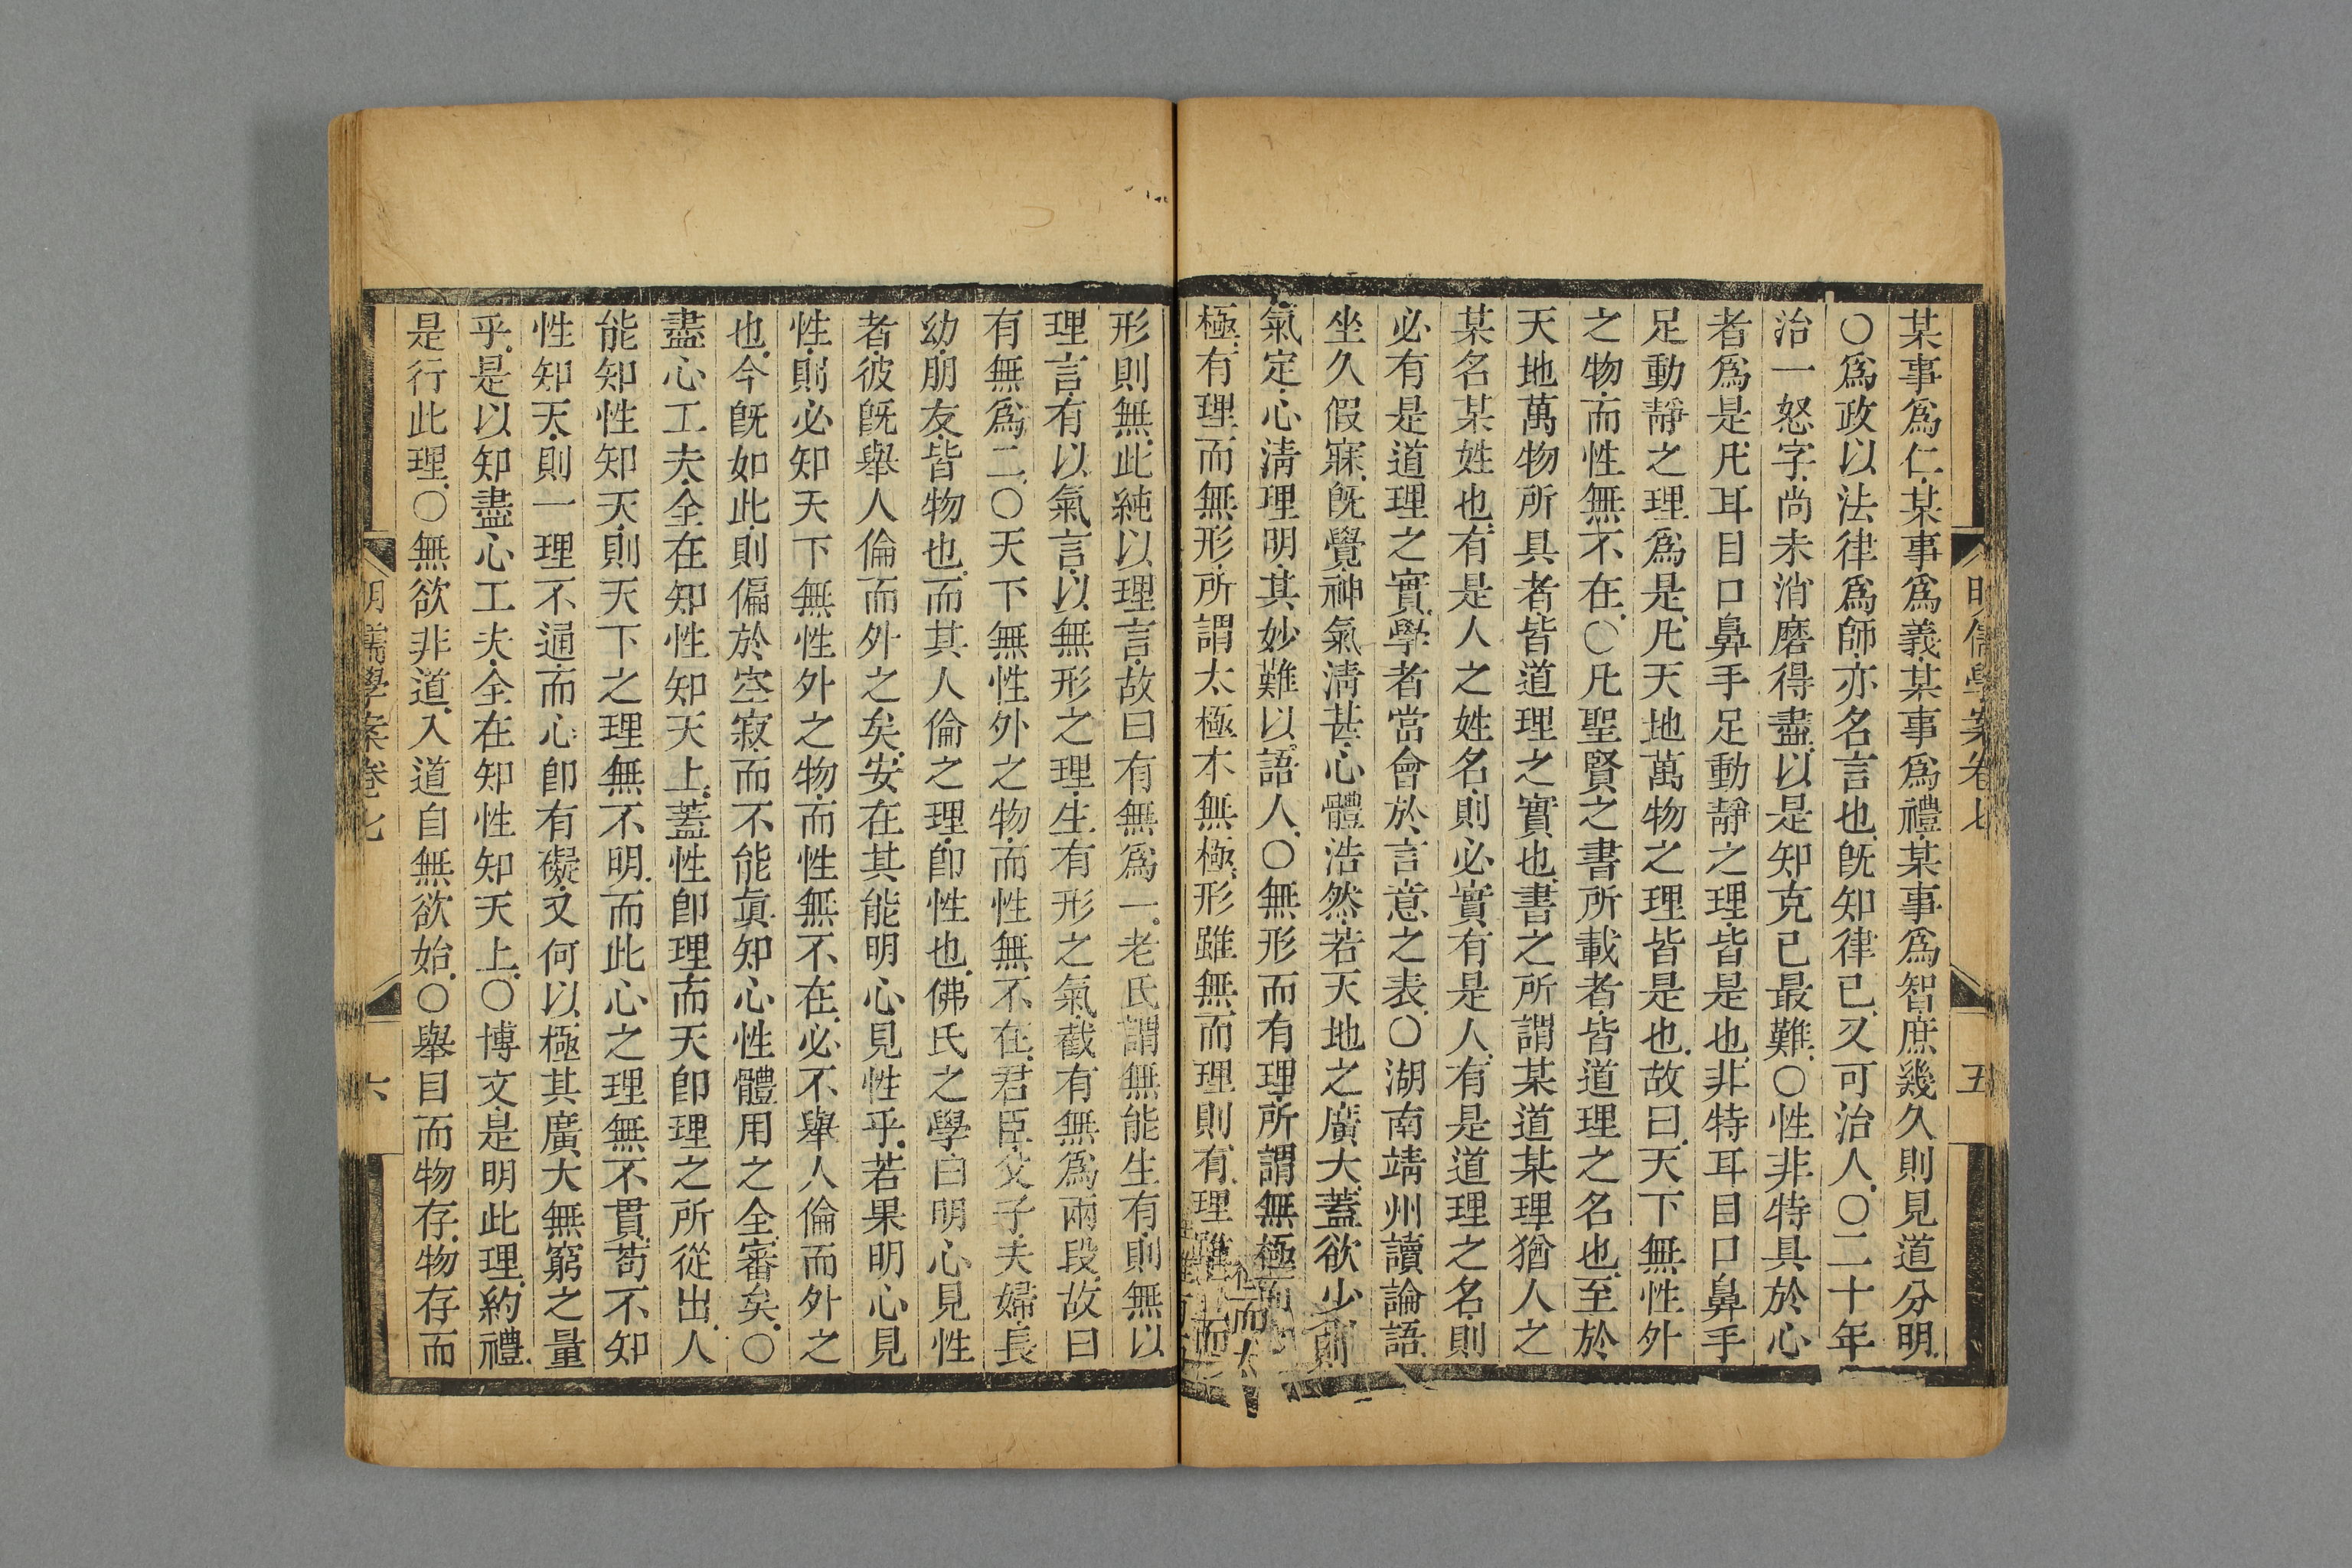 明儒學案卷七 五
某事爲仁某事爲義某事爲禮某事爲智庶幾久則見道分明
〇爲政以法律爲師亦名言也旣知律已又可治人〇二十年
治一怒字尚未消磨得盡以是知克已最難〇性非特具於心
者爲是凡耳目口鼻手足動靜之理皆是也非特耳目口鼻手
足動靜之理爲是凡天地萬物之理皆是也故曰天下無性外
之物而性無不在〇凡聖賢之書所載者皆道理之名也至於
天地萬物所具者皆道理之實也書之所謂某道某理猶人之
某名某姓也有是人之姓名則必實有是人有是道理之名則
必有是道理之實學者當會於言意之表〇湖南靖州讀論語
坐久假寐旣覺神氣淸甚心體浩然若天地之廣大蓋欲少則
氣定心淸理明其妙難以語人〇無形而有理所謂無極而太
極有理而無形所謂太極本無極形雖無而理則有理雖有而
形則無此純以理言故曰有無爲一老氏謂無能生有則無以
理言有以氣言以無形之理生有形之氣截有無爲兩段故曰
有無爲二〇天下無性外之物而性無不在君臣父子夫婦長
幼朋友皆物也而其人倫之理卽性也佛氏之學曰明心見性
者彼旣舉人倫而外之矣安在其能明心見性乎若果明心見
性則必知天下無性外之物而性無不在必不舉人倫而外之
也今旣如此則偏於空寂而不能眞知心性體用之全審矣〇
盡心工夫全在知性知天上蓋性卽理而天卽理之所從出人
能知性知天則天下之理無不明而此心之理無不貫苟不知
性知天則一理不通而心卽有礙又何以極其廣大無窮之量
乎是以知盡心工夫全在知性知天上〇博文是明此理約禮
是行此理〇無欲非道入道自無欲始〇舉目而物存物存而
明儒學案卷七 六